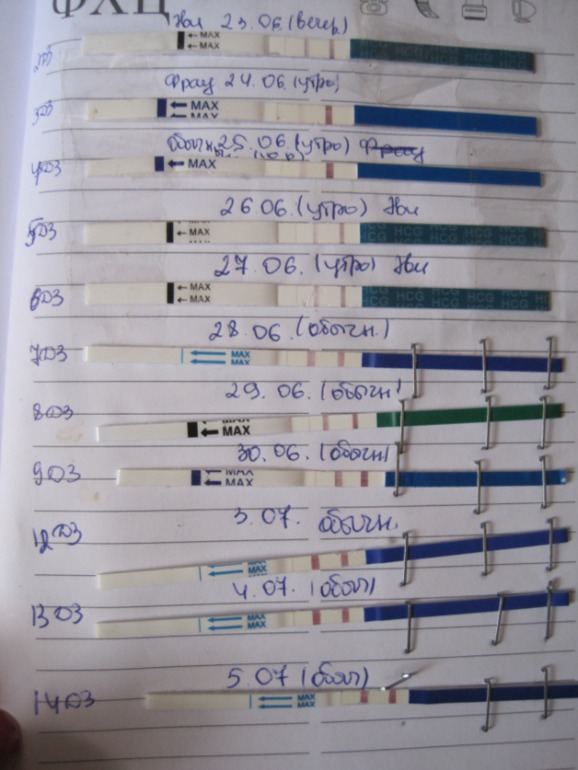 ФХЦ
Эви 23.06. (вечер)
← MAX
← MAX
HCG HCG HCG HCG
Фрау 24.06. (утро)
3ДЗ
← MAX
← MAX
25.06. (утро)
4ДЗ
← MAX
26.06. (утро) Эви
5ДЗ
← MAX
HCG HCG HCG HCG
27.06. (утро) Эви
6ДЗ
← MAX
← MAX
HCG HCG HCG HCG
28.06. (обычн.)
7ДЗ
MAX
MAX
29.06. (обычн)
8ДЗ
← MAX
30.06. (обычн)
9ДЗ
MAX
MAX
3.07. обычн.
12ДЗ
MAX
MAX
4.07. (обыч)
13ДЗ
MAX
MAX
5.07 (обыч)
14ДЗ
MAX
MAX